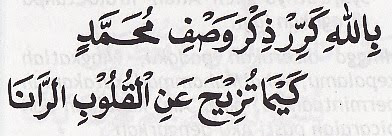 بِاللهِ كَرِّرْ ذِكْرَ وَصْفِ مُحَمَّدٍ
كَيْمَا تُزِيْحَ عَنِ الْقُلُوْبِ الرَّانَا